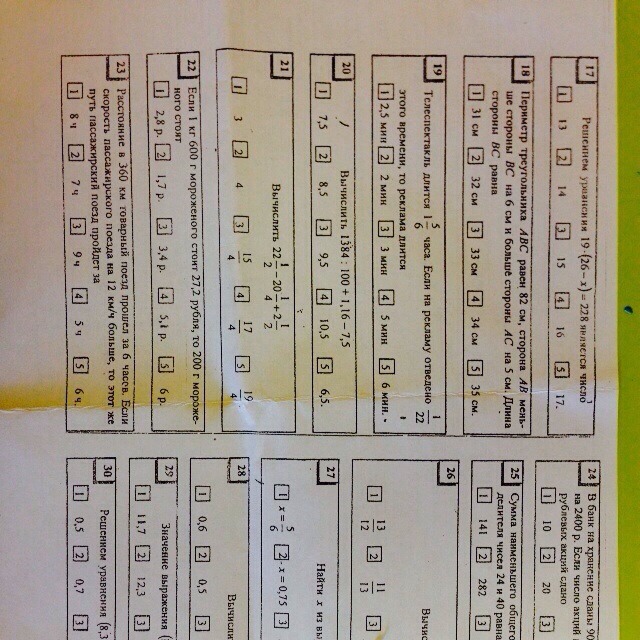 17
Решением уравнения 19·(26 – x) = 228 является число
1 13 2 14 3 15 4 16 5 17.
18
Периметр треугольника ABC равен 82 см, сторона AB мень-
ше стороны BC на 6 см и больше стороны AC на 5 см. Длина
стороны BC равна
1 31 см 2 32 см 3 33 см 4 34 см 5 35 см.
19
Телеспектакль длится 1 5/6 часа. Если на рекламу отведено 1/22
этого времени, то реклама длится
1 2,5 мин 2 2 мин 3 3 мин 4 5 мин 5 6 мин.
20
Вычислить 1384 : 100 + 1,16 – 7,5
1 7,5 2 8,5 3 9,5 4 10,5 5 6,5.
21
Вычислить 22 1/2 – 20 1/4 + 2 1/2
1 3 2 4 3 15/4 4 17/4 5 19/4
22
Если 1 кг 600 г мороженого стоит 27,2 рубля, то 200 г мороже-
ного стоят
1 2,8 р. 2 1,7 р. 3 3,4 р. 4 5,1 р. 5 6 р.
23
Расстояние в 360 км товарный поезд прошел за 6 часов. Если
скорость пассажирского поезда на 12 км/ч больше, то этот же
путь пассажирский поезд пройдет за
1 8 ч 2 7 ч 3 9 ч 4 5 ч 5 6 ч.
24
В банк на хранение сданы
на 2400 р. Если число акций
рублевых акций сдано
1 10 2 20 3
25
Сумма наименьшего общего
делителя чисел 24 и 40 равна
1 141 2 282 3
26
Вычи
1 13/12 2 11/13 3
27
Найти x из
1 x = 5/6 2 x = 0,75 3
28
Вычисли
1 0,6 2 0,5 3
29
Значение выражения (
1 11,7 2 12,3 3
30
Решением уравнения (8,3
1 0,5 2 0,7 3